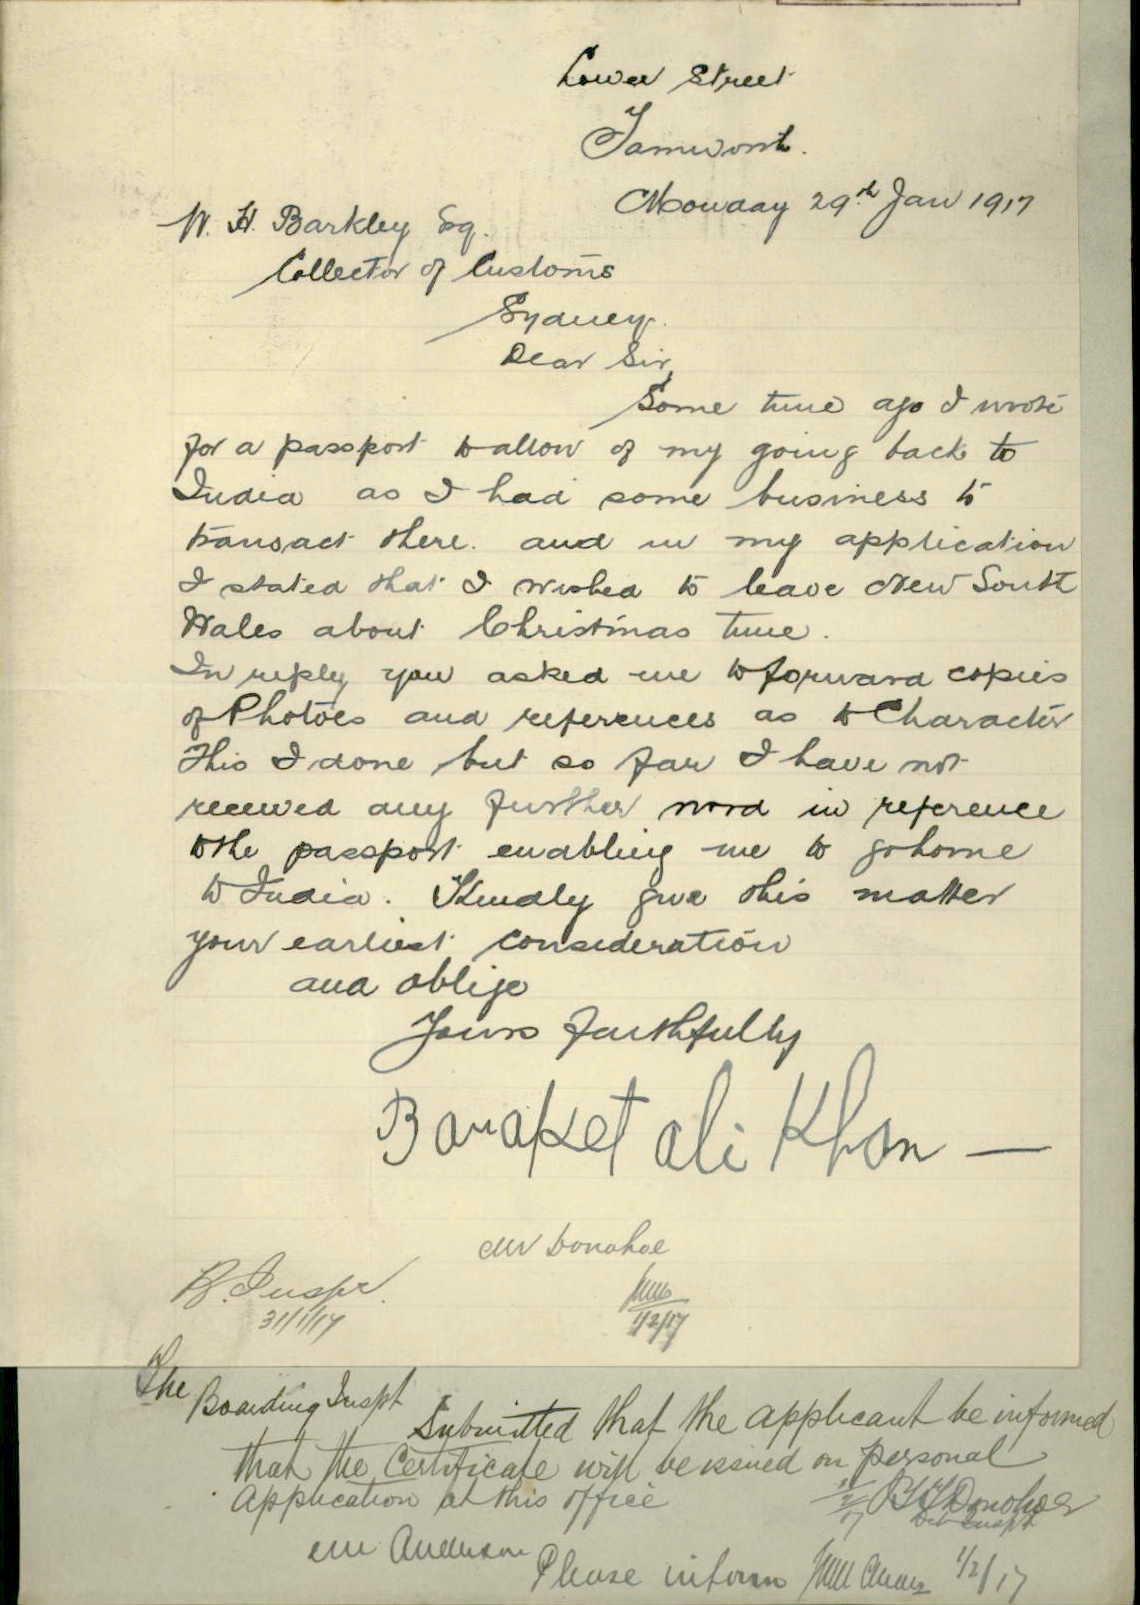 Lower Street
Tamworth.
Monday 29th Jan 1917
W. H. Barkley Esq.
Collector of Customs
Sydney.
Dear Sir,
Some time ago I wrote
for a passport to allow of my going back to
India as I had some business to
transact there. and in my application
I stated that I wished to leave New South
Wales about Christmas time.
In reply you asked me to forward copies
of Photoes and references as to Character
This I done but so far I have not
received any further word in reference
to the passport enabling me to go home
to India. Kindly give this matter
your earliest consideration
and oblige
Yours faithfully
Baraket ali Khan —
Mr Donohoe
B. Inspr.
31/1/17
1/2/17
The Boarding Inspt
Submitted that the applicant be informed
that the Certificate will be issued on personal
application at this office
Donohoe
1/2/17
Det Inspt
Mr Anderson
Please inform
1/2/17